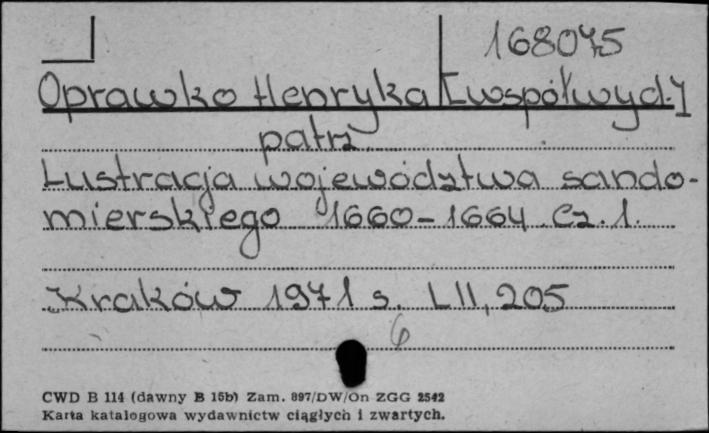 168075
Oprawko Henryka [współwyd.]
patrz
Lustracja województwa sando-
mierskiego 1660-1664 Cz. 1.
Kraków 1971 s. LII, 205
6
CWD B 114 (dawny B 15b) Zam. 897/DW/On ZGG 2542
Karta katalogowa wydawnictw ciągłych i zwartych.